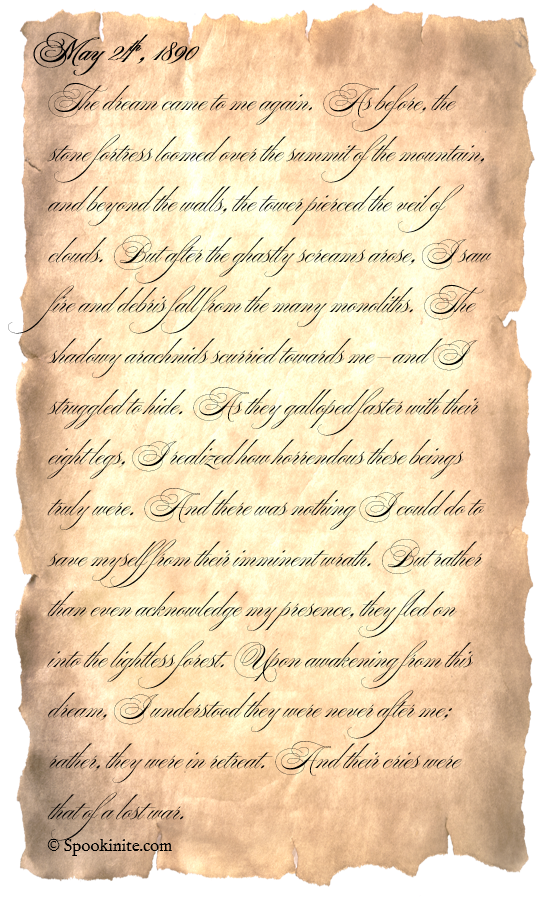 May 21th, 1890
The dream came to me again. As before, the
stone fortress loomed over the summit of the mountain,
and beyond the walls, the tower pierced the veil of
clouds. But after the ghastly screams arose, I saw
fire and debris fall from the many monoliths. The
shadowy arachnids scurried towards me—and I
struggled to hide. As they galloped faster with their
eight legs, I realized how horrendous these beings
truly were. And there was nothing I could do to
save myself from their imminent wrath. But rather
than even acknowledge my presence, they fled on
into the lightless forest. Upon awakening from this
dream, I understood they were never after me;
rather, they were in retreat. And their cries were
that of a lost war.
© Spookinite.com